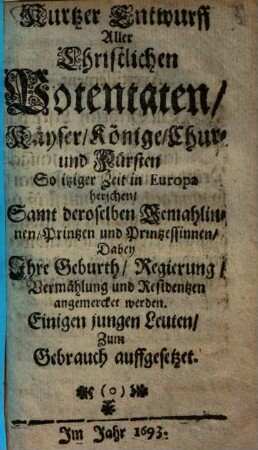 Kurtzer Entwurff
Aller
Christlichen
Potentaten/
Käyser/Könige/Chur-
und Fürsten
So itziger Zeit in Europa
herschen/
Samt deroselben Gemahlin-
nen/Printzen und Printzessinnen/
Dabey
Ihre Geburth/ Regierung/
Vermählung und Residentzen
angemercket werden.
Einigen jungen Leuten/
Zum
Gebrauch auffgesetzet.
(o)
Im Jahr 1693.